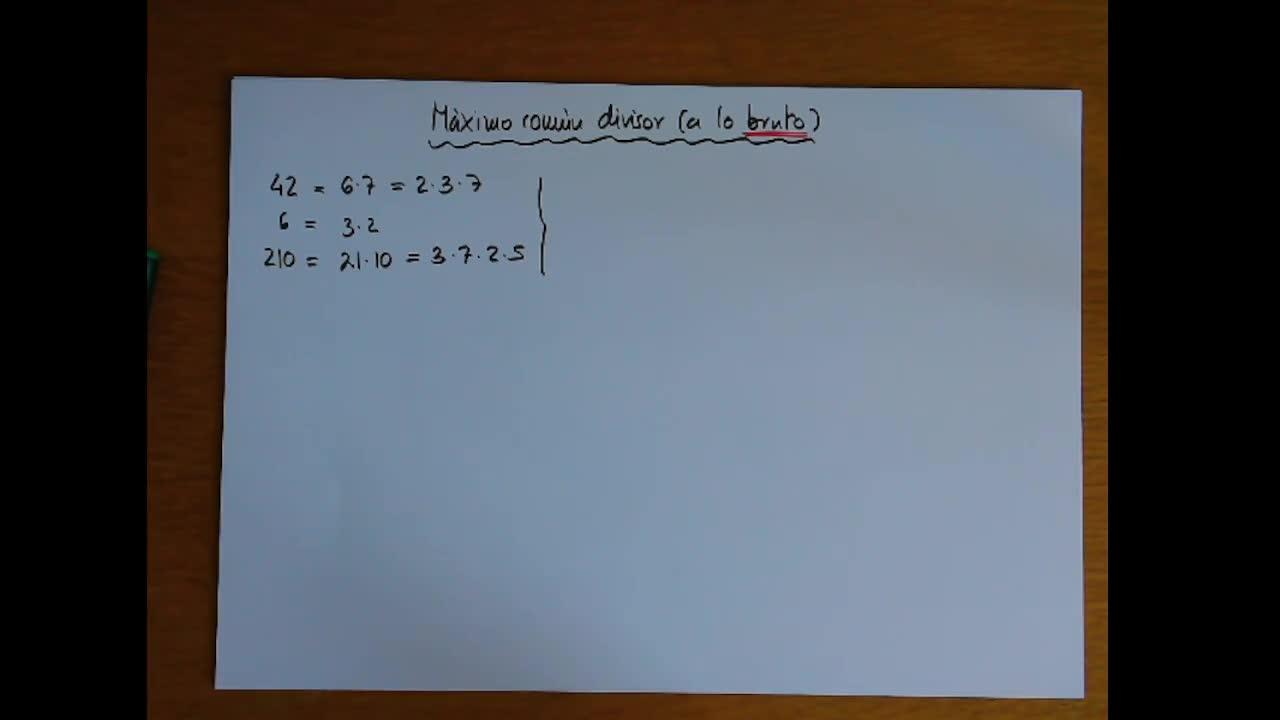 Màximo común divisor (a lo bruto)
42 = 6·7 = 2·3·7
6 = 3·2
210 = 21·10 = 3·7·2·5